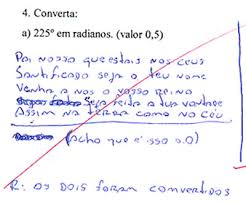 4. Converta:
a) 225º em radianos. (valor 0,5)
Pai nosso que estais nos ceus
Santificado seja o teu nome
Venha a nos o vosso reino
Seja feita a tua vontade
Assim na terra como no céu
(Acho que é isso o.O)
R: os dois foram convertidos